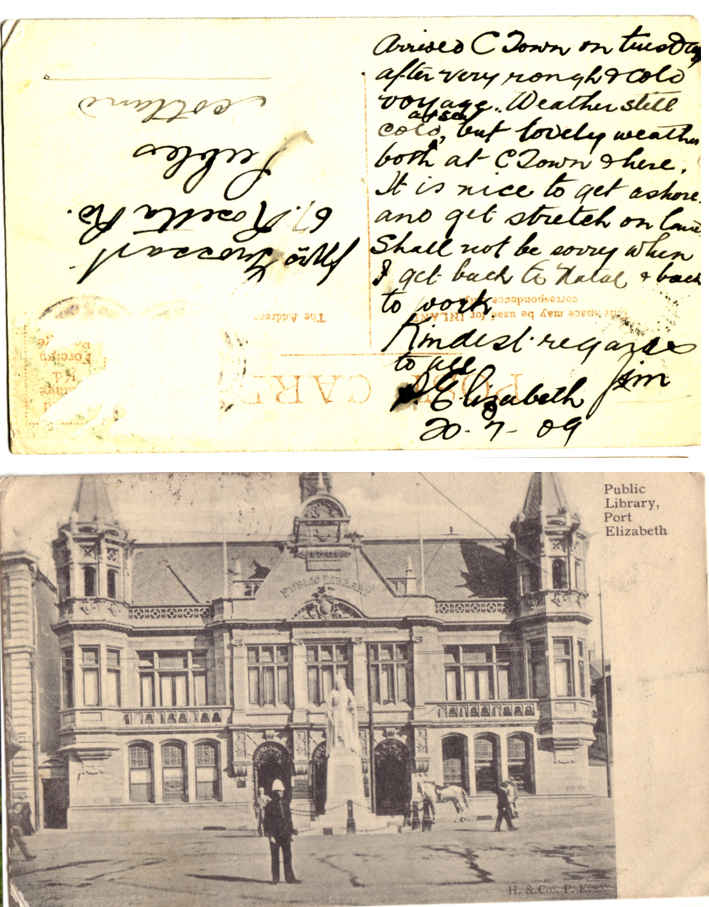 Arrived C Town on tuesday
after very rough & cold
voyage. Weather still
cold, but lovely weather
at sea
both at C Town & here.
It is nice to get ashore
and get stretch on land
Shall not be sorry when
I get back to Natal & back
to work
Kindest regards
to all
Jim
P. Elizabeth
20-7-09
Mrs
61. Rosetta Rd.
Peebles
Scotland
space may be used for INLAND
correspondence
The Address
POST CARD
Foreign
Public
Library,
Port
Elizabeth
PUBLIC LIBRARY
H. & Co. P. E.